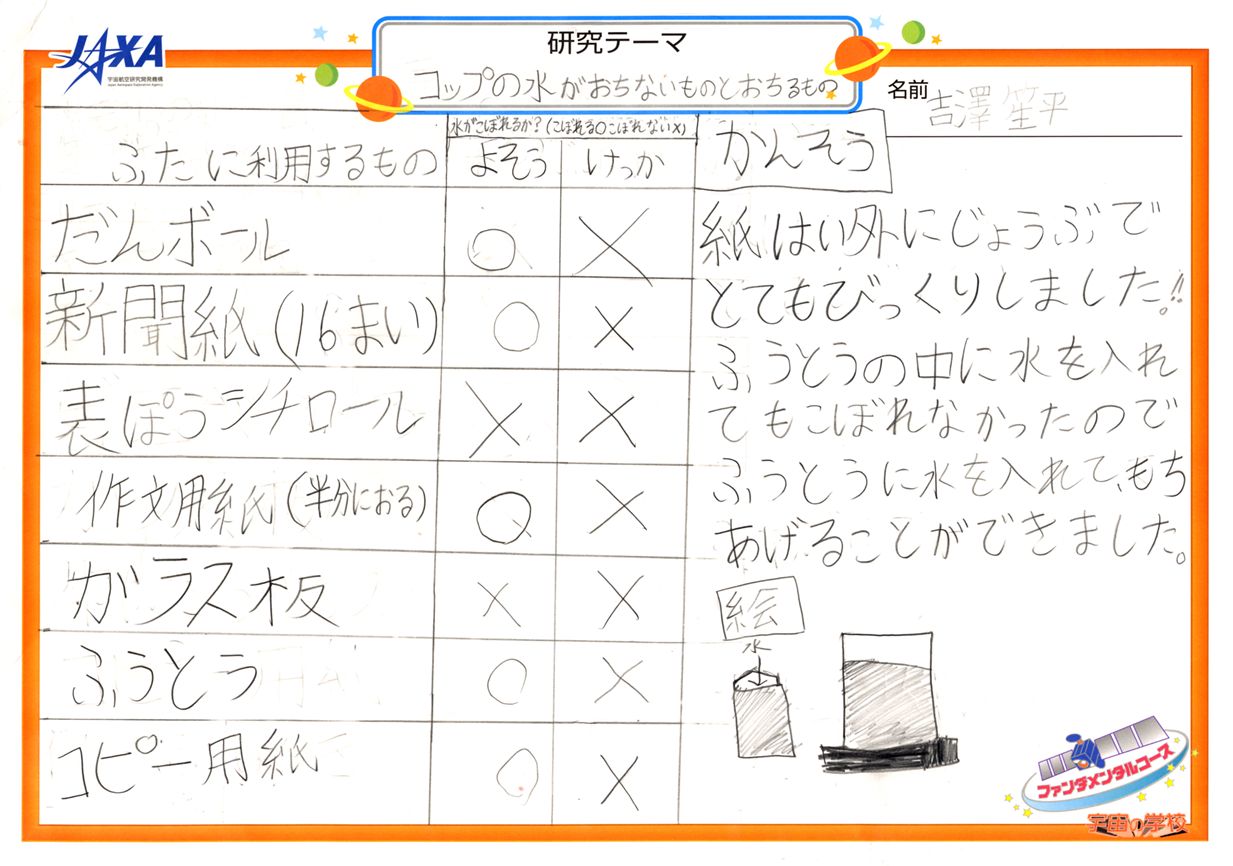 JAXA
宇宙航空研究開発機構
Japan Aerospace Exploration Agency
研究テーマ
コップの水がおちないものとおちるもの
名前
吉澤 笙平
ふたに利用するもの
水がこぼれるか?(こぼれる〇こぼれない×)
よそう けっか
だんボール 〇 ×
新聞紙(16まい) 〇 ×
表ぽうシチロール × ×
作文用紙(半分におる) 〇 ×
ガラス板 × ×
ふうとう 〇 ×
コピー用紙 〇 ×
かんそう
紙はい外にじょうぶで
とてもびっくりしました!!
ふうとうの中に水を入れ
てもこぼれなかったので
ふうとうに水を入れて、もち
あげることができました。
絵
水
ファンダメンタルコース
宇宙の学校